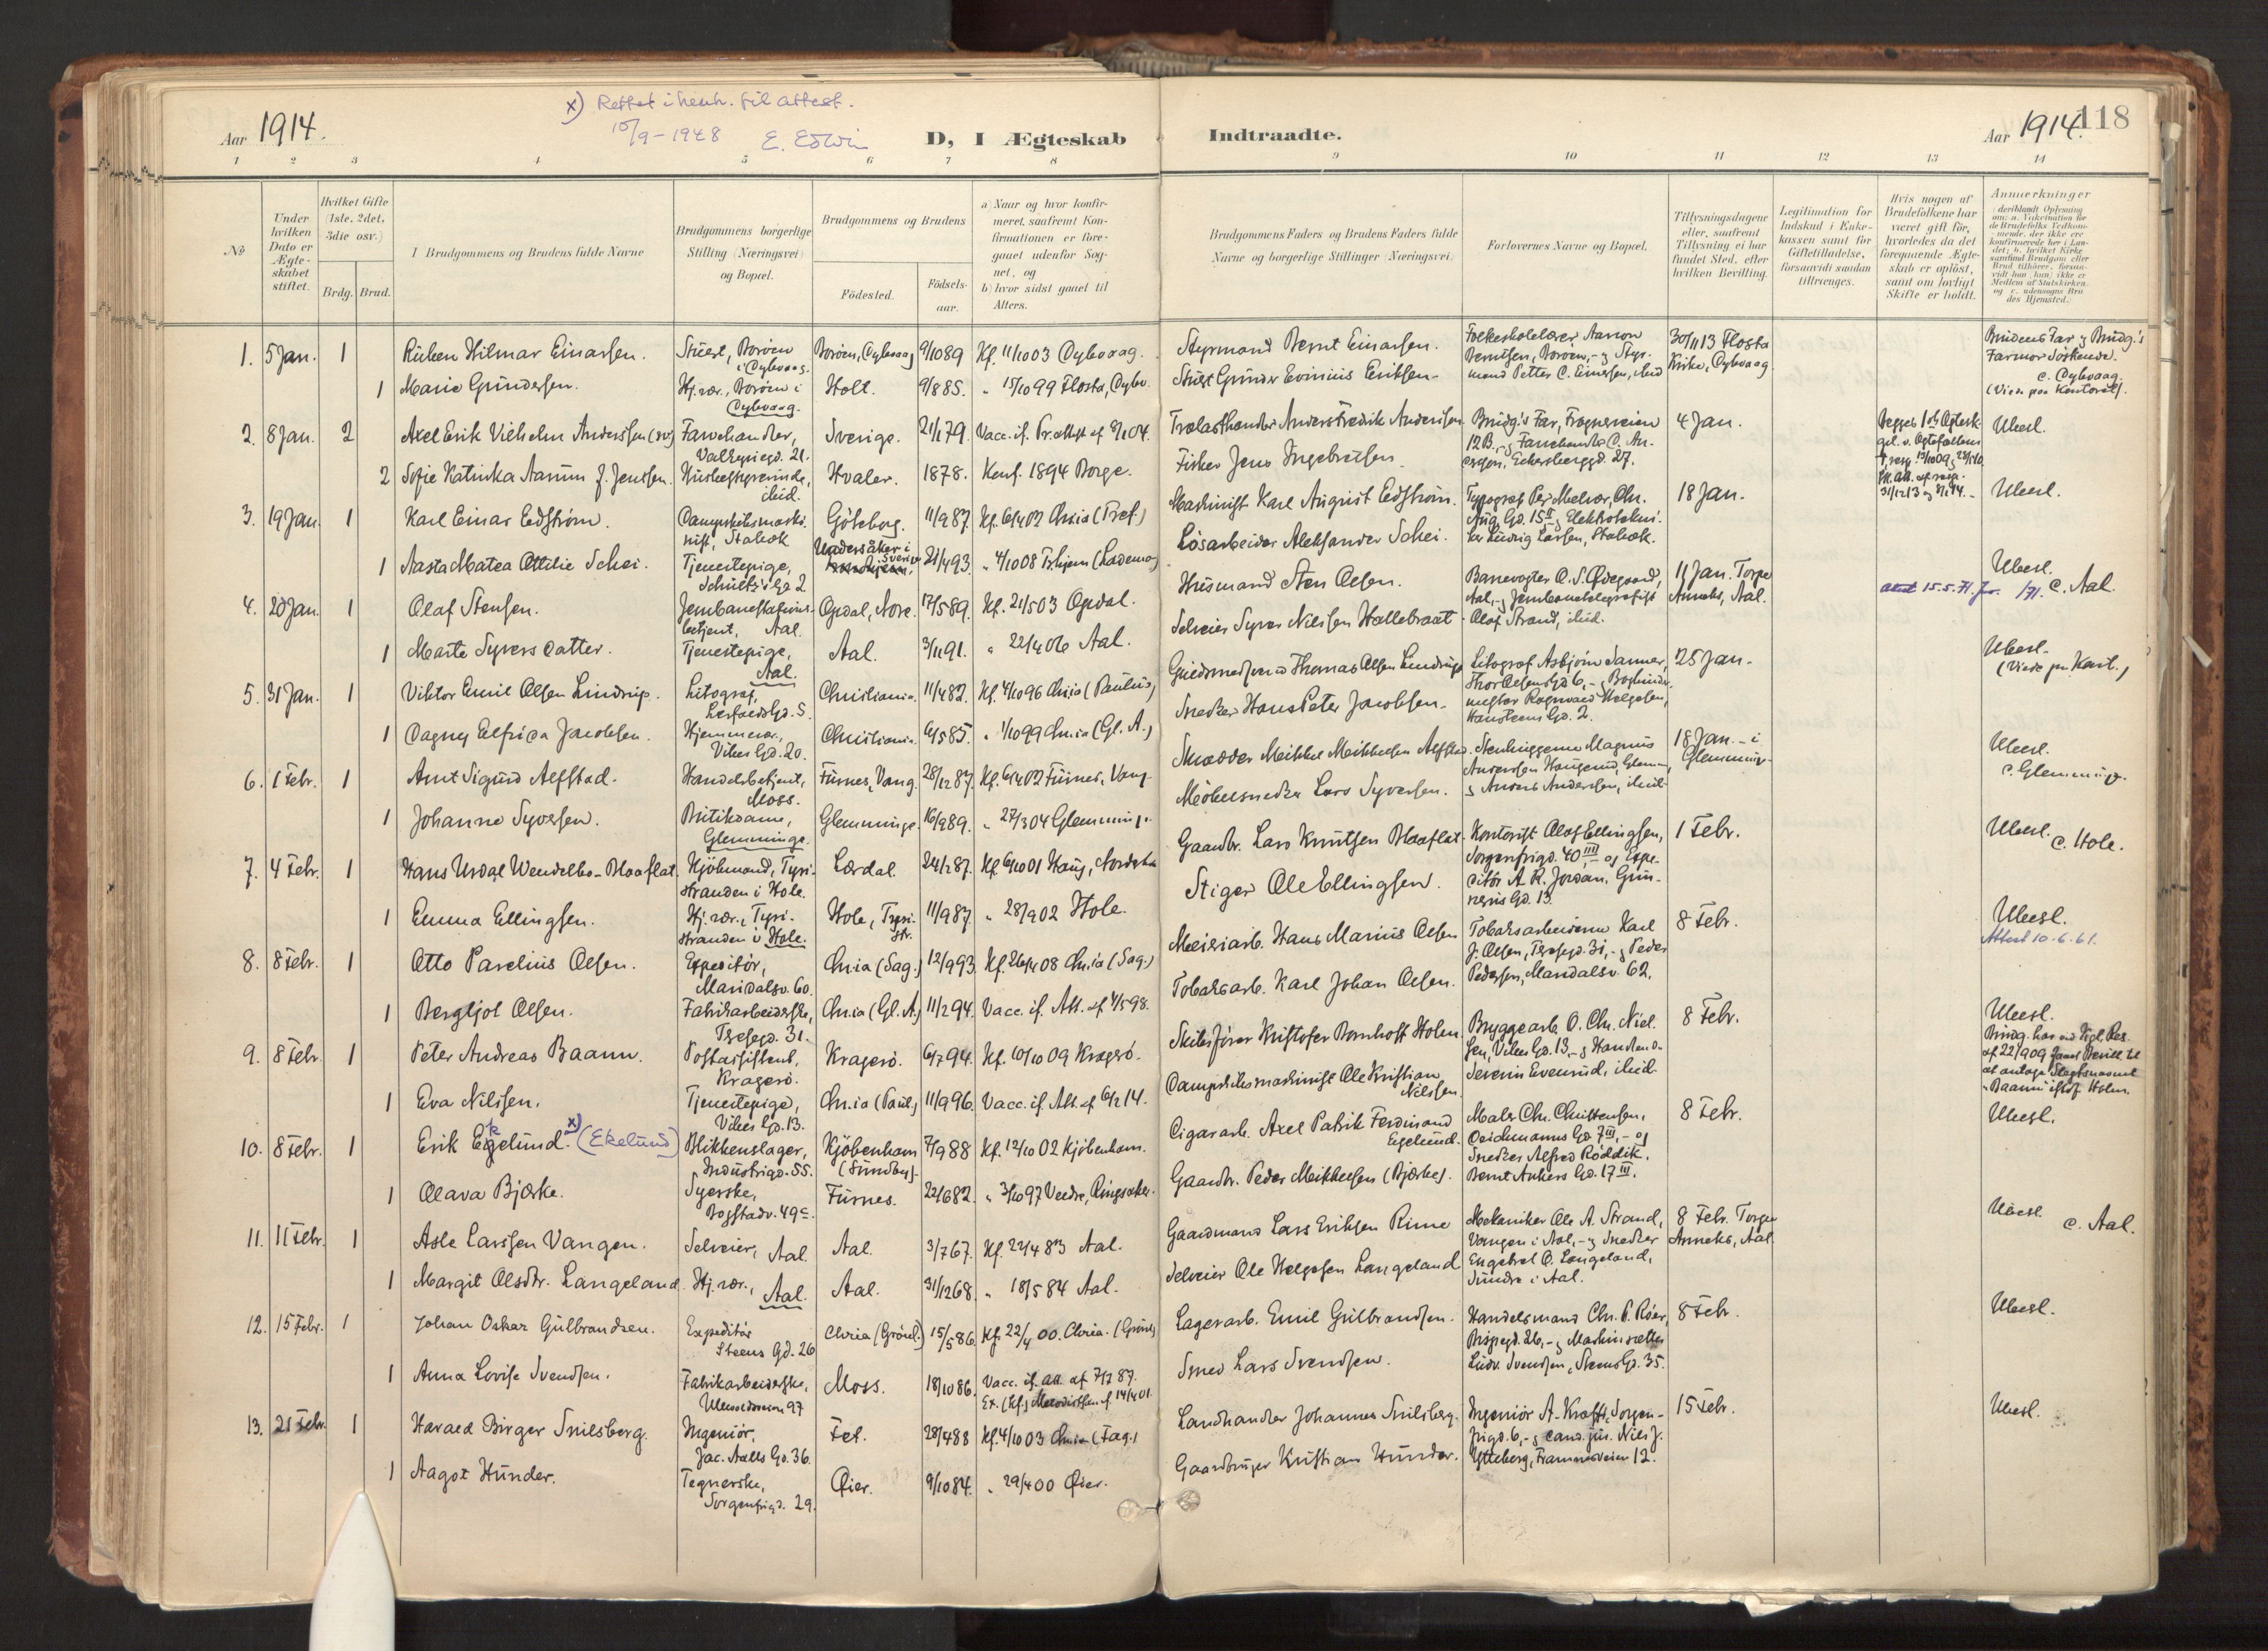 x) Rettet i henh. til attest.
15/9-1948 E. Edwin
Aar 1914.
D, I Ægteskab Indtraadte.
Aar 1914. 118
1 2 3 4 5 6 7 8 9 10 11 12 13 14
No
Under hvilken Dato er Ægteskabet stiftet.
Hvilket Gifte (1ste, 2det, 3die osv.)
Brdg. Brud.
Brudgommens og Brudens fulde Navne
Brudgommens borgerlige Stilling (Næringsvei) og Bopæl.
Brudgommens og Brudens
Fødested.
Fødselsaar.
a) Naar og hvor konfirmeret, saafremt Konfirmationen er foregaaet udenfor Sognet, og
b) hvor sidst gaaet til Alters.
Brudgommens Faders og Brudens Faders fulde Navne og borgerlige Stillinger (Næringsvei).
Forlovernes Navne og Bopæl.
Tillysningsdagene eller, saafremt Tillysning ei har fundet Sted, efter hvilken Bevilling.
Legitimation for Indskud i Enkekassen samt for Giftetilladelse, forsaavidt saadan tiltrænges.
Hvis nogen af Brudefolkene har været gift før, hvorledes da det foregaaende Ægteskab er opløst, samt om lovligt Skifte er holdt.
Anmerkninger
1. 5 Jan. 1 Ruben Hilmar Einarsen. Stuert, Borøen i Dybvaag. Borøen, Dybvaag 9/10 89 Kf. 11/10 03 Dybvaag. Styrmand Bernt Einarsen. Folkeskolelærer Aanon Berntsen, Borøen, - og Styrmand Petter C. Einersen, ibid 30/11 13 Flosta Kirke, Dybvaag Brudens Far og Brudg.'s Farmor Søskende. c. Dybvaag. (Viede paa Kontoret).
1 Marie Gundersen. Hj.vær., Borøen i Dybvaag. Holt. 9/8 85. " 15/10 99 Flosta, Dybv. Stuert Gunder Evinius Eriksen.
2. 8 Jan. 2 Axel Erik Vilhelm Anderssen (sv.) Farvehandler, Valkyriegd. 21. Sverige. 21/1 79. Vacc. if. Pr.attest af 8/1 04. Trælasthandler Anders Fredrik Anderssen Brudg.'s Far, Frognerveien 12B. - og Farvehandler C. Andersen, Eckersberggd. 27. 4 Jan. Begges 1ste Ægtesk. Ubesl.
2 Sofie Katinka Aanum f. Jenssen. Husbestyrerinde, ibid. Hvaler. 1878. Konf. 1894 Borge. Fisker Jens Ingebretsen.
3. 19 Jan. 1 Karl Einar Edstrøm. Dampskibsmaskinist, Stabæk Göteborg. 11/9 87. Kf. 6/4 02 Chr.ia (Prof.) Maskinist Karl August Edstrøm. Typograf Per Melvær, Chr. Aug. Gd. 15 II og Elektrotekniker Ludvig Larsen, Stabæk. 18 Jan. Ubesl.
1 Aasta Matea Ottilie Schei. Tjenestepige, Schultz's Gd. 2 Undersåker i Sverige 21/4 93. " 4/10 08 Tr.hjem (Lademo) Løsarbeider Aleksander Schei.
4. 20 Jan. 1 Olaf Stensen. Jernbanestations-betjent, Aal. Opdal, Nore. 17/5 89. Kf. 21/5 03 Opdal. Husmand Sten Olsen. Banevogter O. S. Ødegaard, Aal, - og Jernbanetelegrafist Olaf Strand, ibid. 11 Jan. Torpe Anneks, Aal. attest 15.5.71. Ubesl. c. Aal.
1 Marte Syversdatter. Tjenestepige, Aal. Aal. 3/11 91. " 22/4 06 Aal. Selveier Syver Nilssen Hallebraat.
5. 31 Jan. 1 Viktor Emil Olsen Lindrup. Litograf, Christiania. 11/4 82. Kf. 4/10 96 Chr.ia (Paulus) Guldsmedsvend Thomas Olsen Lindrup Litograf Asbjørn Sanner, Thor Olsens Gd. 6, - og Bogbindermester Ragnvald Helgesen, Hausteens Gd. 2. 25 Jan. Ubesl. (Viede paa Kont.)
1 Dagny Elfrida Jacobsen. Hjemmevær., Vibes Gd. 20. Christiania. 6/5 85. " 1/10 99 Chr.ia (Gl. A.) Snedker Hans Peter Jacobsen.
6. 1 Febr. 1 Arnt Sigurd Alfstad. Handelsbetjent, Moss. Furnes, Vang. 28/12 87. Kf. 6/4 02 Furnes, Vang. Skrædder Meikkel Meikkelsen Alfstad. Stenhuggerne Magnus Anderssen Haugerud, Glemm. og Anders Anderssen, ibid. 18 Jan. - i Glemminge. Ubesl. c. Glemminge.
1 Johanne Syversen. Butikdame, Glemminge. Glemminge. 16/9 89. " 27/3 04 Glemminge. Møbelsnedker Lars Syversen.
7. 4 Febr. 1 Hans Urdal Wendelbo-Blaaflat. Kjøbmand, Tyristranden i Hole. Lærdal. 24/1 87. Kf. 6/10 01 Haug, Gaardbr. Lars Knutsen Blaaflat. Kontorist Olaf Ellingsen, Sorgenfrigd. 40 III, - og Expeditør A. R. Jordan, Grünners Gd. 13. 1 Febr. Ubesl. c. Hole.
1 Emma Ellingsen. Hj.vær., Tyristranden i Hole. Hole, Tyristr. 11/9 87. " 28/9 02 Hole. Stiger Ole Ellingsen.
8. 8 Febr. 1 Otto Parelius Olsen. Expeditør, Maridalsv. 60. Chr.ia (Sag.) 12/9 93. Kf. 26/4 08 Chr.ia (Sag.) Meieriarb. Hans Marius Olsen Tobaksarbeiderne Karl J. Olsen, Thesegd. 31, - og Peder Pedersen, Maridalsv. 62. 8 Febr. Ubesl. Attest 10.6.61.
1 Bergljot Olsen. Fabrikarbeiderske, Chr.ia (Gl. A.) 11/2 94. Vacc. if. Att. af 4/5 98. Tobaksarb. Karl Johan Olsen.
9. 8 Febr. 1 Peter Andreas Baann. Postassistent, Kragerø. Kragerø. 6/7 94. Kf. 10/10 09 Kragerø. Skibsfører Kristofer Bernhoft Holm. Bryggearb. O. Chr. Nielsen, Vibes Gd. 13, - og Handlende Severin Evensrud, ibid. 8 Febr. Ubesl. Brudg. har ved Kgl. Res. af 22/9 09 faaet Bevill. til at antage Slægtsnavnet "Baann" istedf. Holm.
1 Eva Nilssen. Tjenestepige, Vibes Gd. 13. Chr.ia (Paul.) 11/9 96. Vacc. if. Att. af 6/2 14. Dampskibsmaskinist Ole Kristian Nilssen.
10. 8 Febr. 1 Erik Egelund. x) (Ekelund) Blikkenslager, Industrigd. 55. Kjøbenhavn (Sundby). 7/9 88 Kf. 12/10 02 Kjøbenhavn. Cigararb. Axel Patrik Ferdinand Egelund. Maler Chr. Christensen, Deichmanns Gd. 7 III, - og Snedker Alfred Röddik, Bernt Ankers Gd. 17 III. 8 Febr. Ubesl.
1 Olava Bjørke. Syerske, Bogstadv. 49 c. Furnes. 22/6 82. " 3/10 97 Veldre, Ringsaker. Gaardbr. Peder Meikkelsen (Bjørke).
11. 11 Febr. 1 Asle Larssen Vangen. Selveier, Aal. Aal. 3/7 67. Kf. 22/4 83 Aal. Gaardmand Lars Eriksen Rime Mekaniker Ole A. Strand, Vangen i Aal, - og Snedker Engebret O. Langeland, Sundre i Aal. 8 Febr. Torpe Anneks, Aal. Ubesl. c. Aal.
1 Margit Olsdtr. Langeland. Hj.vær., Aal. Aal. 31/12 68. " 18/5 84 Aal. Selveier Ole Helgesen Langeland
12. 15 Febr. 1 Johan Oskar Gulbrandsen. Expeditør Steens Gd. 26 Chria (Grønl.) 15/5 86. Kf. 22/4 00. Chria. (Grønl.) Lagerarb. Emil Gulbrandsen. Handelsmand Chr. P. Röer, Bispegd. 26, - og Maskinsætter Ludv. Svendsen, Steens Gd. 35. 8 Febr. Ubesl.
1 Anna Lovise Svendsen. Fabrikarbeiderske, Ullevoldsveien 97 Moss. 18/10 86. Vacc. if. att. af 7/7 87. Smed Lars Svendsen.
13. 21 Febr. 1 Harald Birger Snilsberg. Ingeniør, Jac. Aalls Gd. 36. Fet. 28/4 88 Kf. 4/10 03 Chr.ia (Fag.) Landhandler Johannes Snilsberg. Ingeniør A. Krafft, Sorgenfrigd. 6, - og cand. jur. Nils J. Ytteberg, Framnesveien 12. 15 Febr. Ubesl.
1 Aagot Hunder. Tegnerske, Sorgenfrigd. 29. Øier. 9/10 84. " 29/4 00 Øier. Gaardbruger Kristian Hunder.